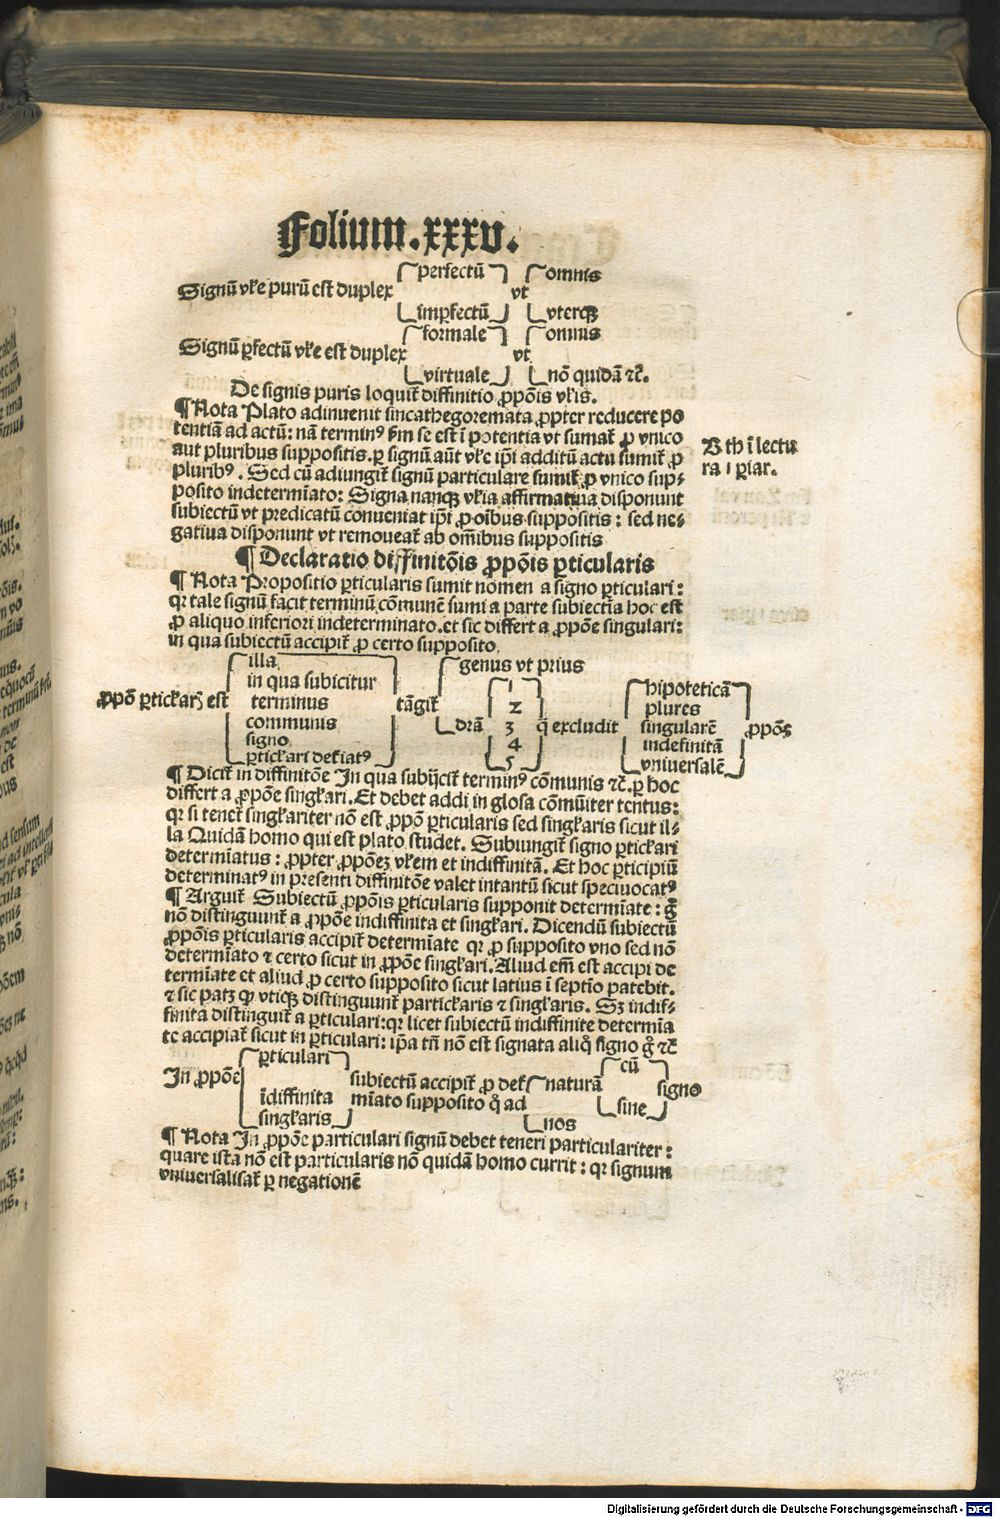 Folium.xxxv.
perfectū omnis
Signū vl̄e purū est duplex vt
imꝑfectū vterqꝫ
formale omnis
Signū ꝑfectū vl̄e est duplex vt
virtuale nō quidā ⁊c̄.
De signis puris loquit̄ diffinitio ꝓpōis vl̄is.
¶ Nota Plato adinuenit sincathegoremata ꝓpter reducere po
tentiā ad actū: nā terminꝰ ẜm se est ī potentia vt sumat̄ ꝓ vnico
aut pluribus suppositis. ꝑ signū aūt vl̄e ip̄i additū actu sumit̄ ꝓ
pluribꝰ. Sed cū adiungit̄ signū particulare sumit̄ ꝓ vnico sup⸗
posito indetermīato: Signa nanqꝫ vl̄ia affirmatiua disponunt
subiectū vt predicatū conueniat ip̄i ꝓ oībus suppositis: sed ne⸗
gatiua disponunt vt remoueat̄ ab om̄ibus suppositis
B th ī lectu
ra ı ꝑiar.
¶ Declaratio diffinitōis ꝓpōis ꝑticularis
¶ Nota Propositio ꝑticularis sumit nomen a signo ꝑticulari:
qꝛ tale signū facit terminū cōmunē sumi a parte subiecti ꝓ hoc est
ꝓ aliquo inferiori indeterminato. et sic differt a ꝓpōe singulari:
in qua subiectū accipit̄ ꝓ certo supposito.
illa genus vt prius
in qua subicitur 1 hipoteticā
ꝓpō ꝑticl̄arꝭ est terminus tāgit̄ 2 plures
communis drām 3 q̄ excludit singularē ꝓpōes
signo 4 indefinitā
ꝑticl̄ari det̄iatꝰ 5 vniuersalē
¶ Dicit̄ in diffinitōe In qua subijcit̄ terminꝰ cōmunis ⁊c̄. ꝑ hoc
differt a ꝓpōe singl̄ari. Et debet addi in glosa cōmūiter tentus:
qꝛ si tenet̄ singl̄ariter nō est ꝓpō ꝑticularis sed singl̄aris sicut il⸗
la Quidā homo qui est plato studet. Subiungit̄ signo ꝑticl̄ari
determīatus: ꝓpter ꝓpōeꝫ vl̄em et indiffinitā. Et hoc ꝑticipiū
determinatꝰ in presenti diffinitōe valet intantū sicut specivocatꝰ
¶ Arguit̄ Subiectū ꝓpōis ꝑticularis supponit determīate: g̊
nō distinguunt̄ a ꝓpōe indiffinita et singl̄ari. Dicendū subiectū
ꝓpōis ꝑticularis accipit̄ determīate qꝛ ꝓ supposito vno sed nō
determīato ⁊ certo sicut in ꝓpōe singl̄ari. Aliud em̄ est accipi de
termīate et aliud ꝓ certo supposito sicut latius ī septīo patebit.
⁊ sic patꝫ ꝙ vtiqꝫ distinguunt̄ particl̄aris ⁊ singl̄aris. Sꝫ indif⸗
finita distinguit̄ a ꝑticulari: qꝛ licet subiectū indiffinite determīa
te accipiat̄ sicut in ꝑticulari: ip̄a tn̄ nō est signata aliq̊ signo g̊ ⁊c̄
ꝑticulari cū
In ꝓpōe subiectū accipit̄ ꝓ det̄ naturā signo
īdiffinita mīato supposito q̊ ad sine
singl̄aris nos
¶ Nota In ꝓpōe particulari signū debet teneri particulariter:
quare ista nō est particularis nō quidā homo currit: qꝛ signum
vniuersalisat̄ ꝑ negationē
Digitalisierung gefördert durch die Deutsche Forschungsgemeinschaft - DFG